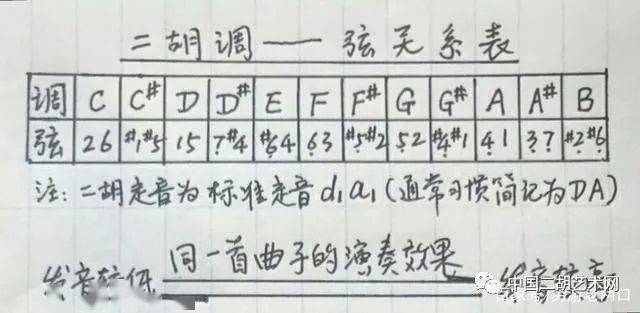 二胡调——弦关系表
调 C C# D D# E F F# G G# A A# B
弦 26 #1#5 15 7#4 #64 63 #5#2 52 #4#1 41 37 #2#6
注：二胡定音为标准定音d₁a₁（通常习惯简记为DA）
发音较低 同一首曲子的演奏效果
中国二胡艺术网